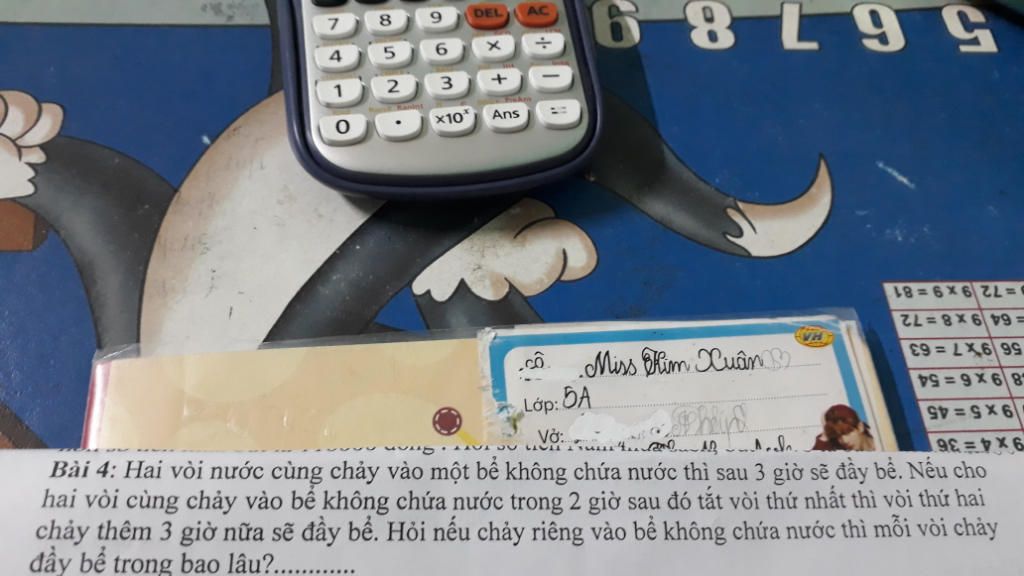 7 8 9 DEL AC
4 5 6 × ÷
1 2 3 + −
0 • ×10ˣ Ans =
5 6 7 8 9
9 x 9 = 81
= 72
9 x 8 = 72
= 64
9 x 7 = 63
56
9 x 6 = 54
9 x 5 = 45
9 x 4 = 36
VH
cô Miss Kim Xuân
Lớp: 5A
Vở:
Bài 4: Hai vòi nước cùng chảy vào một bể không chứa nước thì sau 3 giờ sẽ đầy bể. Nếu cho
hai vòi cùng chảy vào bể không chứa nước trong 2 giờ sau đó tắt vòi thứ nhất thì vòi thứ hai
chảy thêm 3 giờ nữa sẽ đầy bể. Hỏi nếu chảy riêng vào bể không chứa nước thì mỗi vòi chảy
đầy bể trong bao lâu?.............